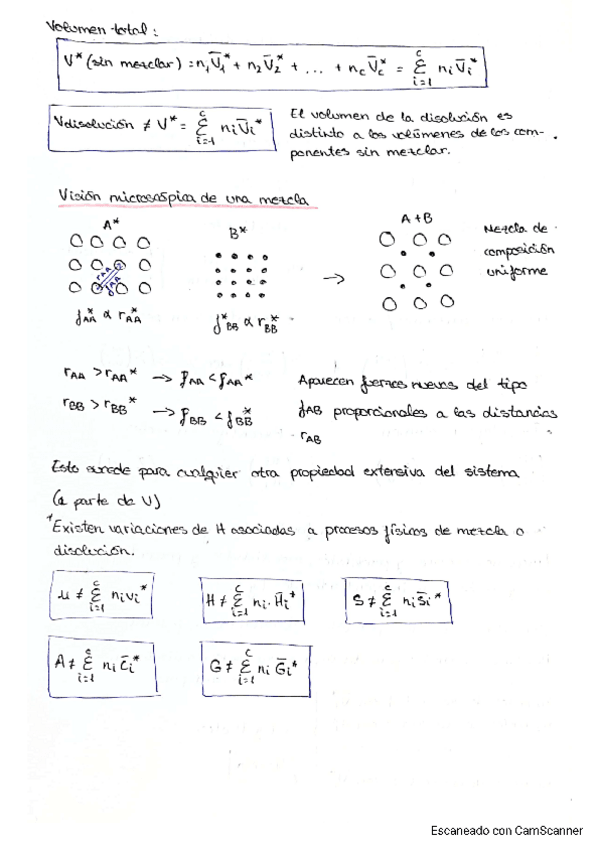 Volumen total:
V* (sin mezclar) = n₁V̄₁* + n₂V̄₂* + ... + ncV̄c* = Σ(i=1, c) niV̄i*
Vdisolución ≠ V* = Σ(i=1, c) niV̄i*
El volumen de la disolución es
distinto a los volúmenes de los com-
ponentes sin mezclar.
Visión microscópica de una mezcla
A*
B*
A+B
Mezcla de
composición
uniforme
rAA
fAA
→
fAA* ∝ rAA*
fBB* ∝ rBB*
rAA > rAA* → fAA < fAA*
rBB > rBB* → fBB < fBB*
Aparecen fuerzas nuevas del tipo
fAB proporcionales a las distancias
rAB
Esto sucede para cualquier otra propiedad extensiva del sistema
(a parte de V)
*Existen variaciones de H asociadas a procesos físicos de mezcla o
disolución.
u ≠ Σ(i=1, c) nivi*
H ≠ Σ(i=1, c) ni·H̄i*
S ≠ Σ(i=1, c) niS̄i*
A ≠ Σ(i=1, c) ni
G ≠ Σ(i=1, c) niḠi*
Escaneado con CamScanner